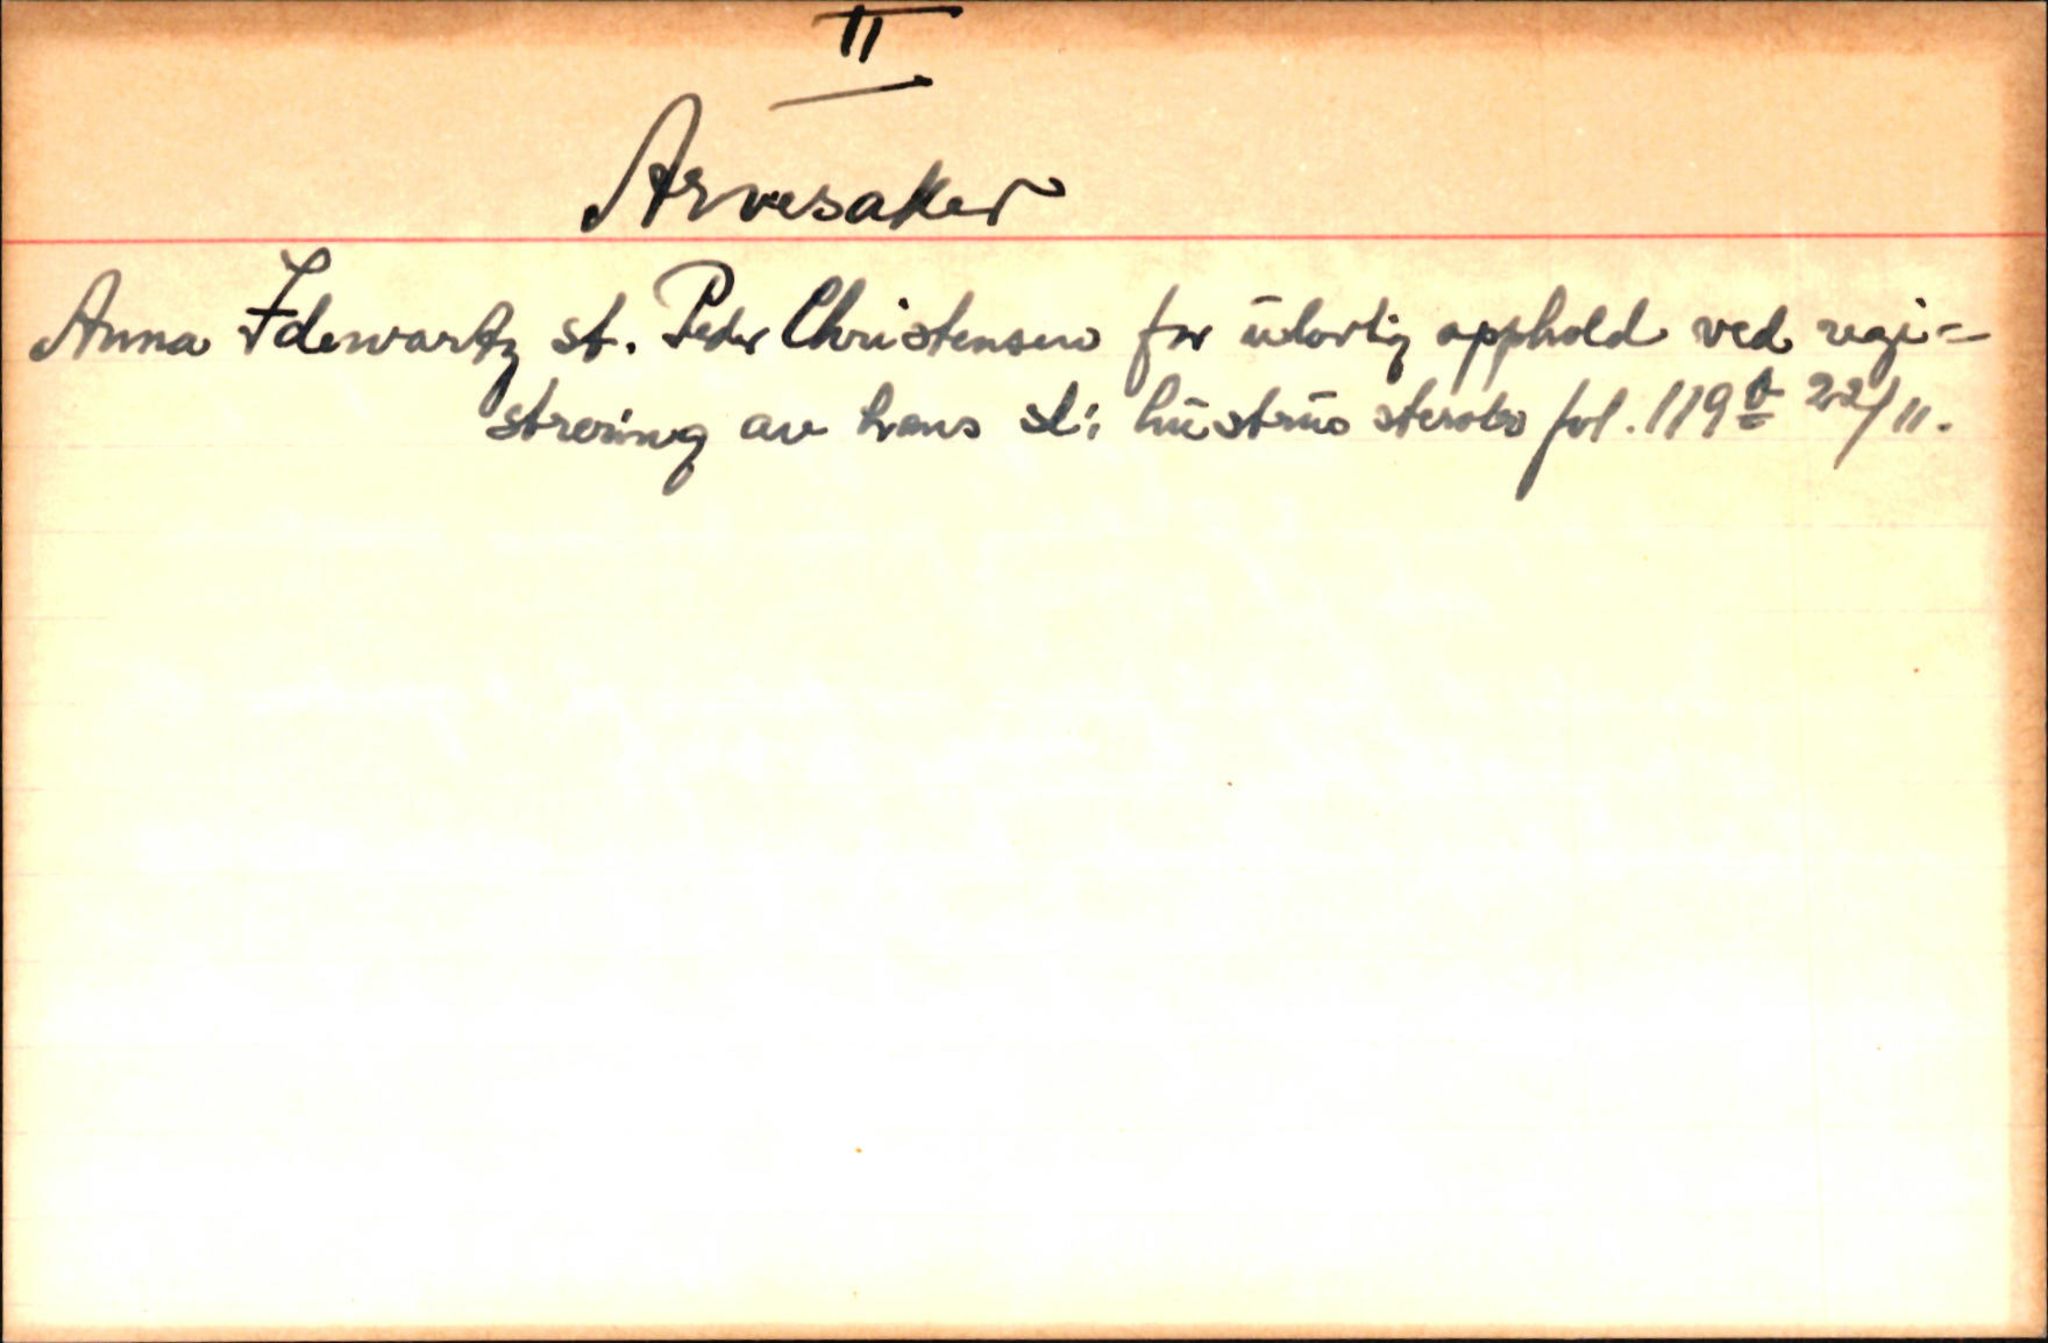 II
Arvesaker
Anna Idewartz st. Peder Christensen for udørtig opphold ved regi=
strering av hans sl: hustrus sterbo fol. 119 b 22/11.